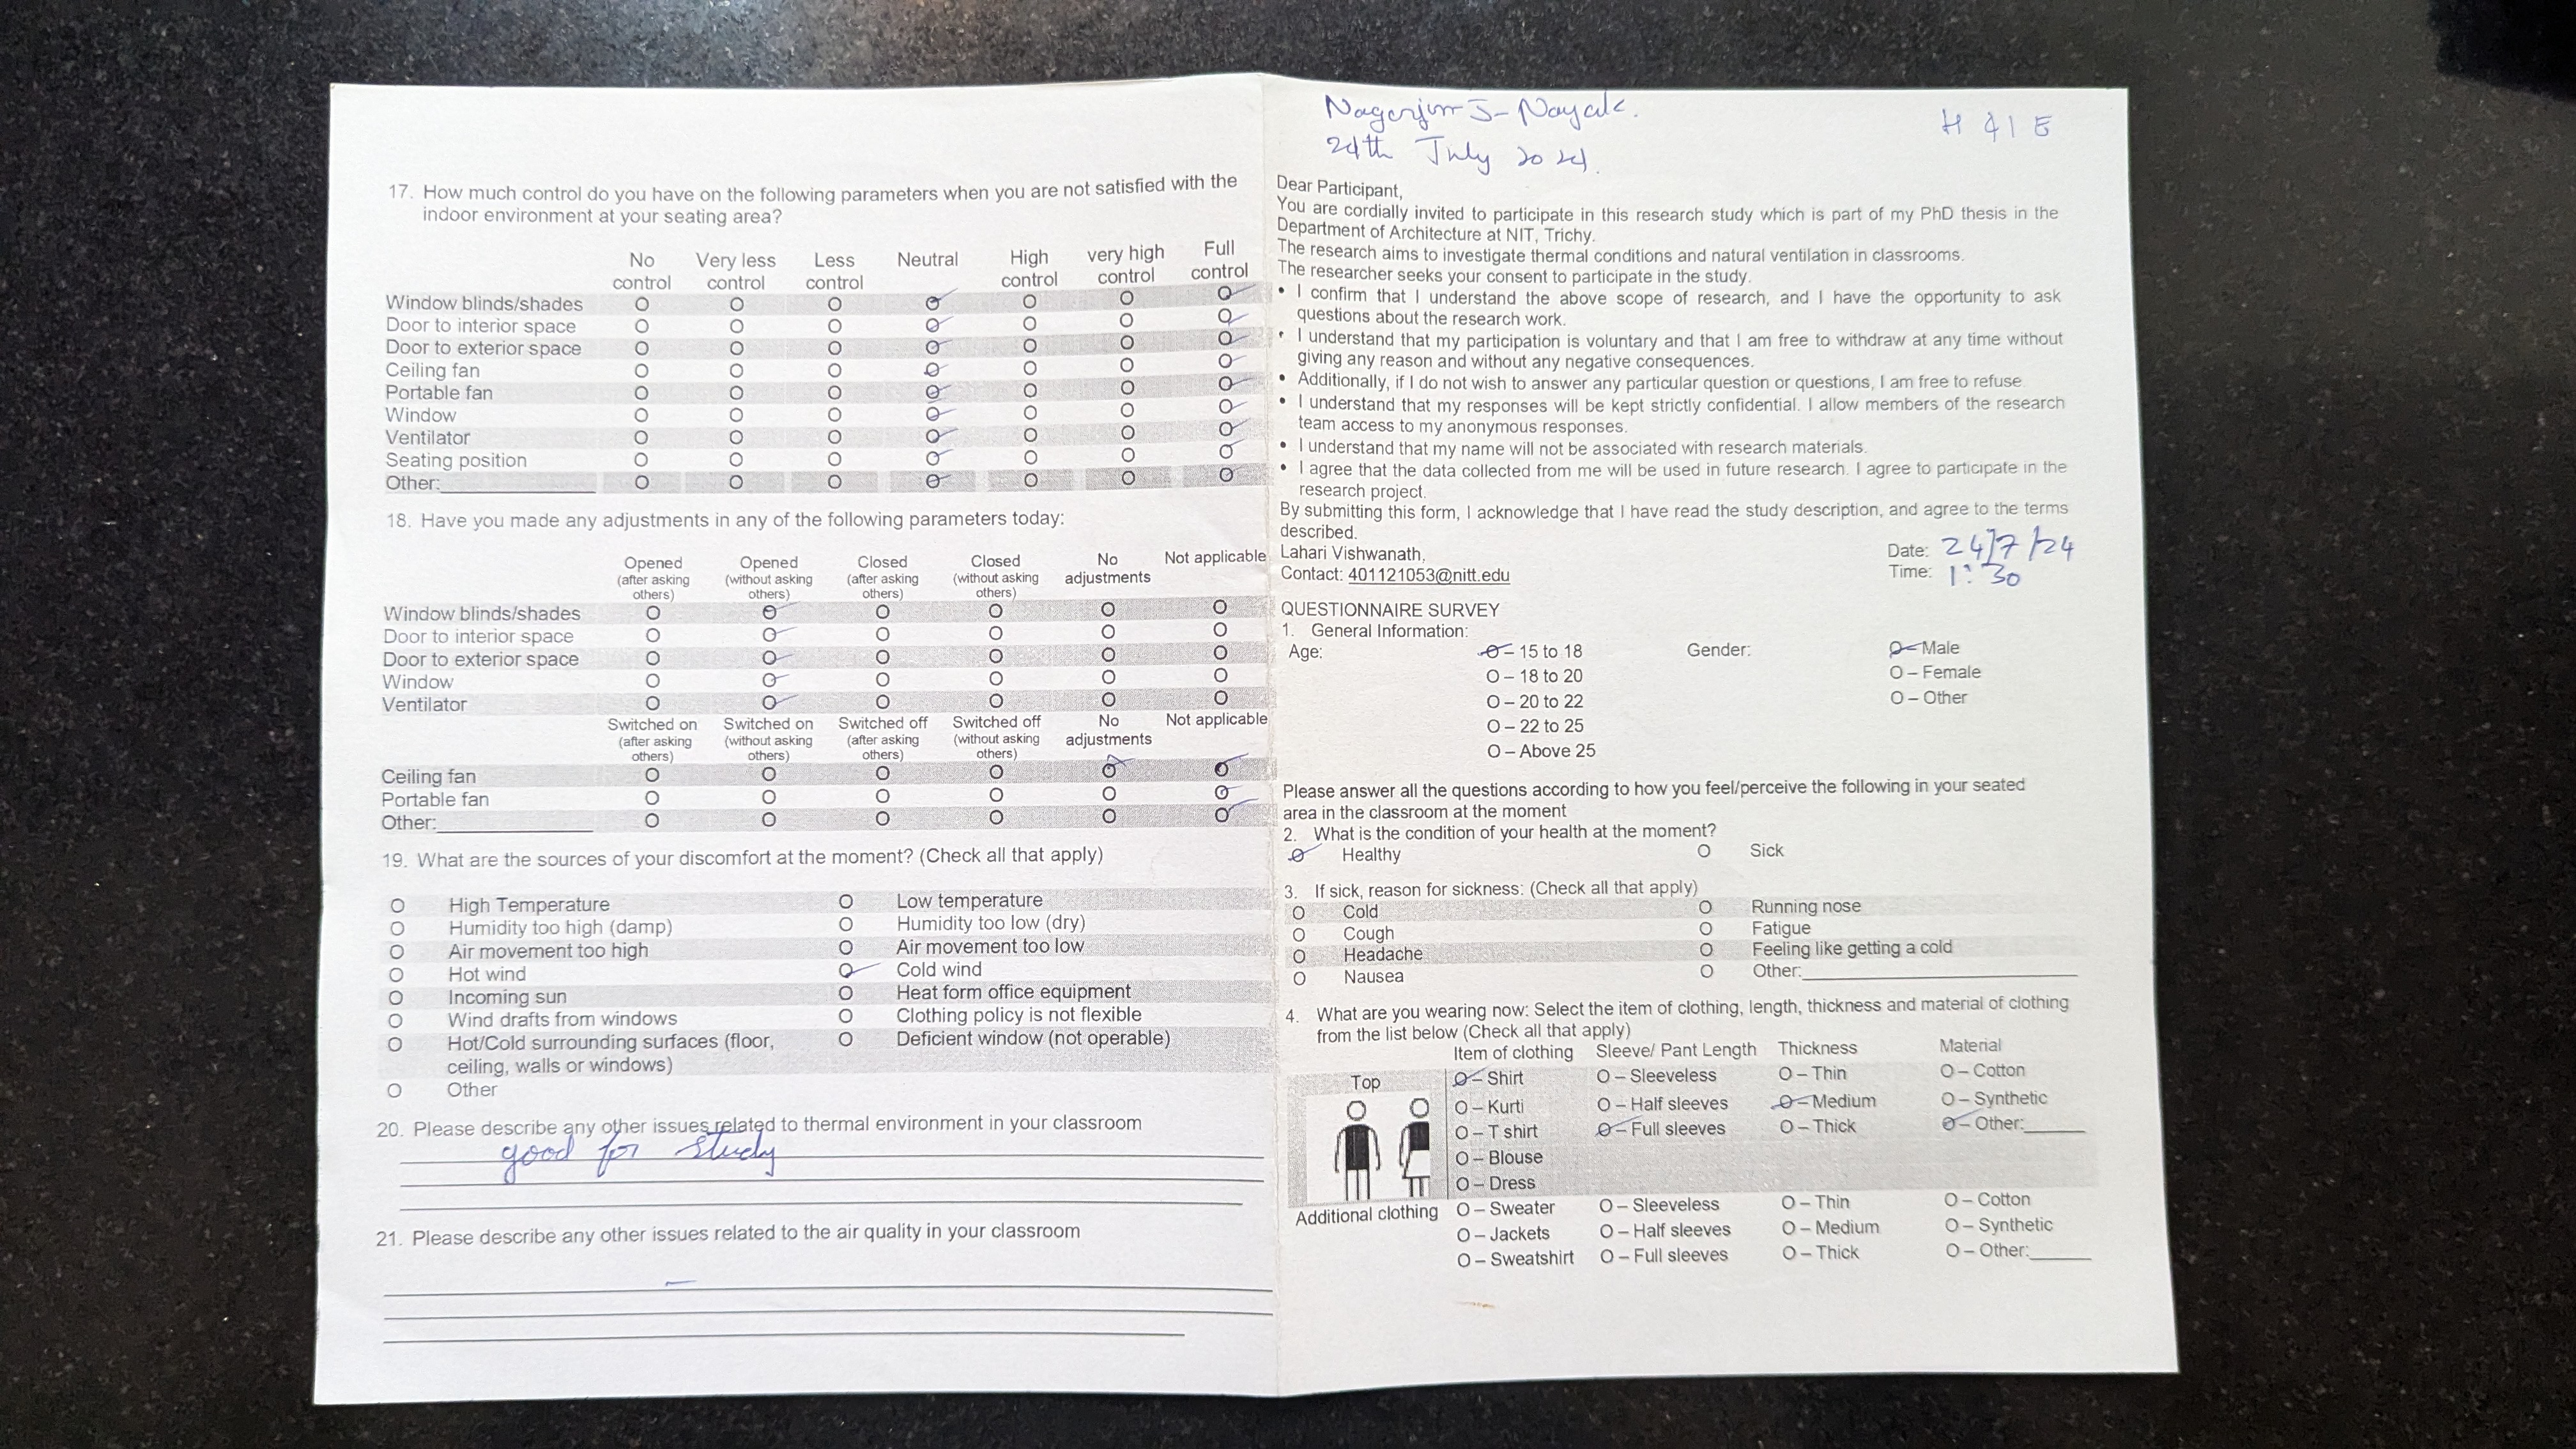 17. How much control do you have on the following parameters when you are not satisfied with the
indoor environment at your seating area?
No control Very less control Less control Neutral High control very high control Full control
Window blinds/shades
Door to interior space
Door to exterior space
Ceiling fan
Portable fan
Window
Ventilator
Seating position
Other:
18. Have you made any adjustments in any of the following parameters today:
Opened (after asking others) Opened (without asking others) Closed (after asking others) Closed (without asking others) No adjustments Not applicable
Window blinds/shades
Door to interior space
Door to exterior space
Window
Ventilator
Switched on (after asking others) Switched on (without asking others) Switched off (after asking others) Switched off (without asking others) No adjustments Not applicable
Ceiling fan
Portable fan
Other:
19. What are the sources of your discomfort at the moment? (Check all that apply)
High Temperature Low temperature
Humidity too high (damp) Humidity too low (dry)
Air movement too high Air movement too low
Hot wind Cold wind
Incoming sun Heat form office equipment
Wind drafts from windows Clothing policy is not flexible
Hot/Cold surrounding surfaces (floor, Deficient window (not operable)
ceiling, walls or windows)
Other
20. Please describe any other issues related to thermal environment in your classroom
good for study
21. Please describe any other issues related to the air quality in your classroom
J- Nayak.
24th July 2024.
H 41 E
Dear Participant,
You are cordially invited to participate in this research study which is part of my PhD thesis in the
Department of Architecture at NIT, Trichy.
The research aims to investigate thermal conditions and natural ventilation in classrooms.
The researcher seeks your consent to participate in the study.
• I confirm that I understand the above scope of research, and I have the opportunity to ask
questions about the research work.
• I understand that my participation is voluntary and that I am free to withdraw at any time without
giving any reason and without any negative consequences.
• Additionally, if I do not wish to answer any particular question or questions, I am free to refuse.
• I understand that my responses will be kept strictly confidential. I allow members of the research
team access to my anonymous responses.
• I understand that my name will not be associated with research materials.
• I agree that the data collected from me will be used in future research. I agree to participate in the
research project.
By submitting this form, I acknowledge that I have read the study description, and agree to the terms
described.
Lahari Vishwanath,
Contact: 401121053@nitt.edu
Date: 24/7/24
Time: 1:30
QUESTIONNAIRE SURVEY
1. General Information:
Age: O – 15 to 18 Gender: O – Male
O – 18 to 20 O – Female
O – 20 to 22 O – Other
O – 22 to 25
O – Above 25
Please answer all the questions according to how you feel/perceive the following in your seated
area in the classroom at the moment
2. What is the condition of your health at the moment?
Healthy Sick
3. If sick, reason for sickness: (Check all that apply)
Cold Running nose
Cough Fatigue
Headache Feeling like getting a cold
Nausea Other:
4. What are you wearing now: Select the item of clothing, length, thickness and material of clothing
from the list below (Check all that apply)
Item of clothing Sleeve/ Pant Length Thickness Material
Top O – Shirt O – Sleeveless O – Thin O – Cotton
O – Kurti O – Half sleeves O – Medium O – Synthetic
O – T shirt O – Full sleeves O – Thick O – Other:
O – Blouse
O – Dress
Additional clothing O – Sweater O – Sleeveless O – Thin O – Cotton
O – Jackets O – Half sleeves O – Medium O – Synthetic
O – Sweatshirt O – Full sleeves O – Thick O – Other: